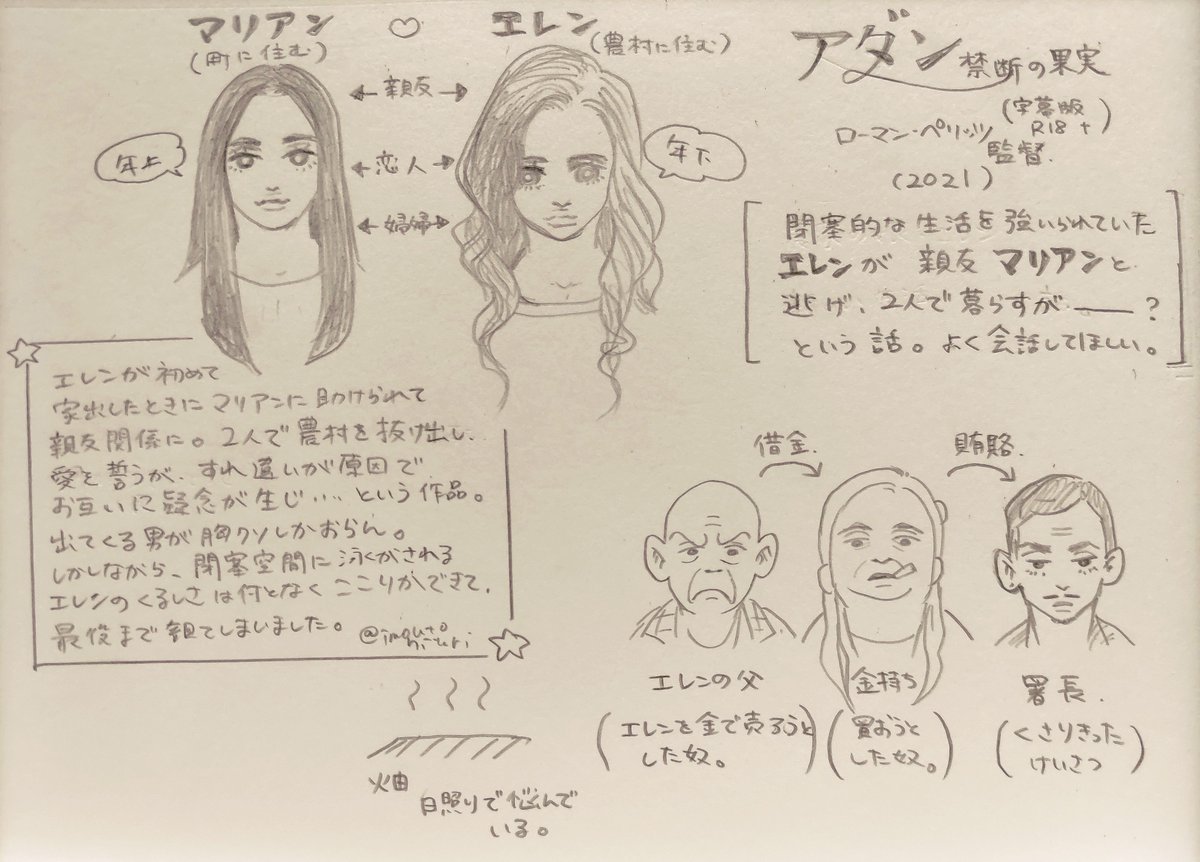 マリアン
(町に住む)
♡
エレン
(農村に住む)
年上
年下
親友
恋人
婦婦
アダン 禁断の果実
(字幕版
R18+)
ローマン・ペリッツ
監督.
(2021)
閉塞的な生活を強いられていた
エレンが 親友 マリアンと
逃げ、2人で暮らすが――?
という話。よく会話してほしい。
エレンが初めて
家出したときにマリアンに助けられて
親友関係に。2人で農村を抜け出し、
愛を誓うが、すれ違いが原因で
お互いに疑念が生じ・・・という作品。
出てくる男が胸クソしかおらん。
しかしながら、閉塞空間に泳がされる
エレンのくるしさは何となくここりができて、
最後まで観てしまいました。
借金.
賄賂.
エレンの父
(エレンを金で売ろうと
した奴。)
金持ち
(買おうと
した奴。)
署長.
(くさりきった
けいさつ)
畑
日照りで悩んで
いる。